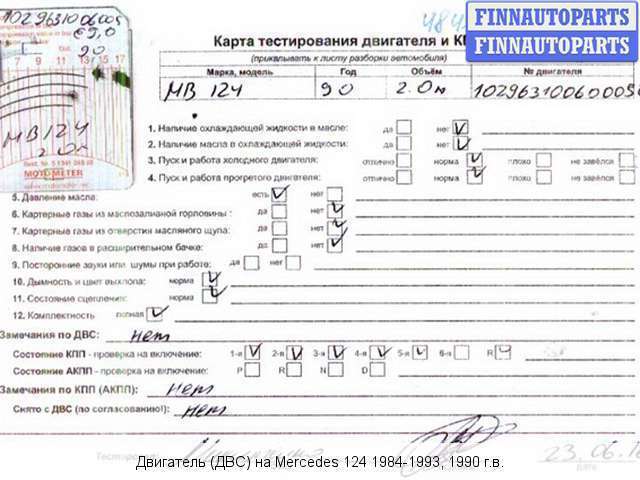 FINNAUTOPARTS
FINNAUTOPARTS
Карта тестирования двигателя и
(прикалывать к листу разборки автомобиля)
Марка, модель Год Объём № двигателя
МВ 124 90 2.0л
9 11 13 15 17
90
МВ 124
2.0л
MOTOMETER
1. Наличие охлаждающей жидкости в масле: да нет
2. Наличие масла в охлаждающей жидкости: да нет
3. Пуск и работа холодного двигателя: отлично норма плохо не завёлся
4. Пуск и работа прогретого двигателя: отлично норма плохо не завёлся
5. Давление масла: есть нет
6. Картерные газы из маслозаливной горловины : да нет
7. Картерные газы из отверстия масляного щупа: да нет
8. Наличие газов в расширительном бачке: да нет
9. Посторонние звуки или шумы при работе: да нет
10. Дымность и цвет выхлопа: норма
11. Состояние сцепления: норма
12. Комплектность полная
Замечания по ДВС: нет
Состояние КПП - проверка на включение: 1-я 2-я 3-я 4-я 5-я 6-я R
Состояние АКПП - проверка на включение: P R N D
Замечания по КПП (АКПП): нет
Снято с ДВС (по согласованию!): нет
дата
Двигатель (ДВС) на Mercedes 124 1984-1993, 1990 г.в.